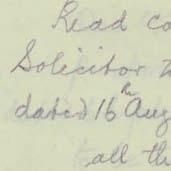 Read co
Solicitor
dated 16th Aug
all th